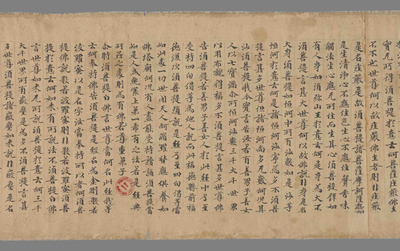 實无所得須菩提於意云何菩薩莊嚴佛土
不不也世尊何以故莊嚴佛土者則非莊嚴
是名莊嚴是故須菩提諸菩薩摩訶薩應如
是生清淨心不應住色生心不應住聲香味
觸法生心應无所住而生其心須菩提譬如
有人身如須弥山王於意云何是身為大不
須菩提言甚大世尊何以故佛說非身是名
大身須菩提如恒河中所有沙數如是沙等
恒河於意云何是諸恒河沙寧為多不須菩
提言甚多世尊但諸恒河尚多无數何況其
沙須菩提我今實言告汝若有善男子善女
人以七寶滿爾所恒河沙數三千大千世界
以用布施得福多不須菩提言甚多世尊佛
告須菩提若善男子善女人於此經中乃至
受持四句偈等為他人說而此福德勝前福
德復次須菩提隨說是經乃至四句偈等當
知此處一切世間天人阿修羅皆應供養如
佛塔廟何況有人盡能受持讀誦須菩提當
知是人成就最上第一希有之法若是經典
所在之處則為有佛若尊重弟子
尒時須菩提白佛言世尊當何名此經我等
云何奉持佛告須菩提是經名為金剛般若
波羅蜜以是名字汝當奉持所以者何須菩
提佛說般若波羅蜜則非般若波羅蜜須菩
提於意云何如來有所說法不須菩提白佛
言世尊如來无所說須菩提於意云何三千
大千世界所有微塵是為多不須菩提言甚
多世尊須菩提諸微塵如來說非微塵是名